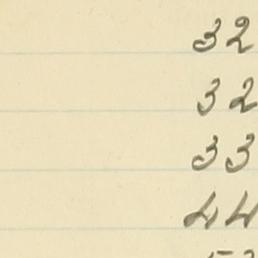 32
32
33
44